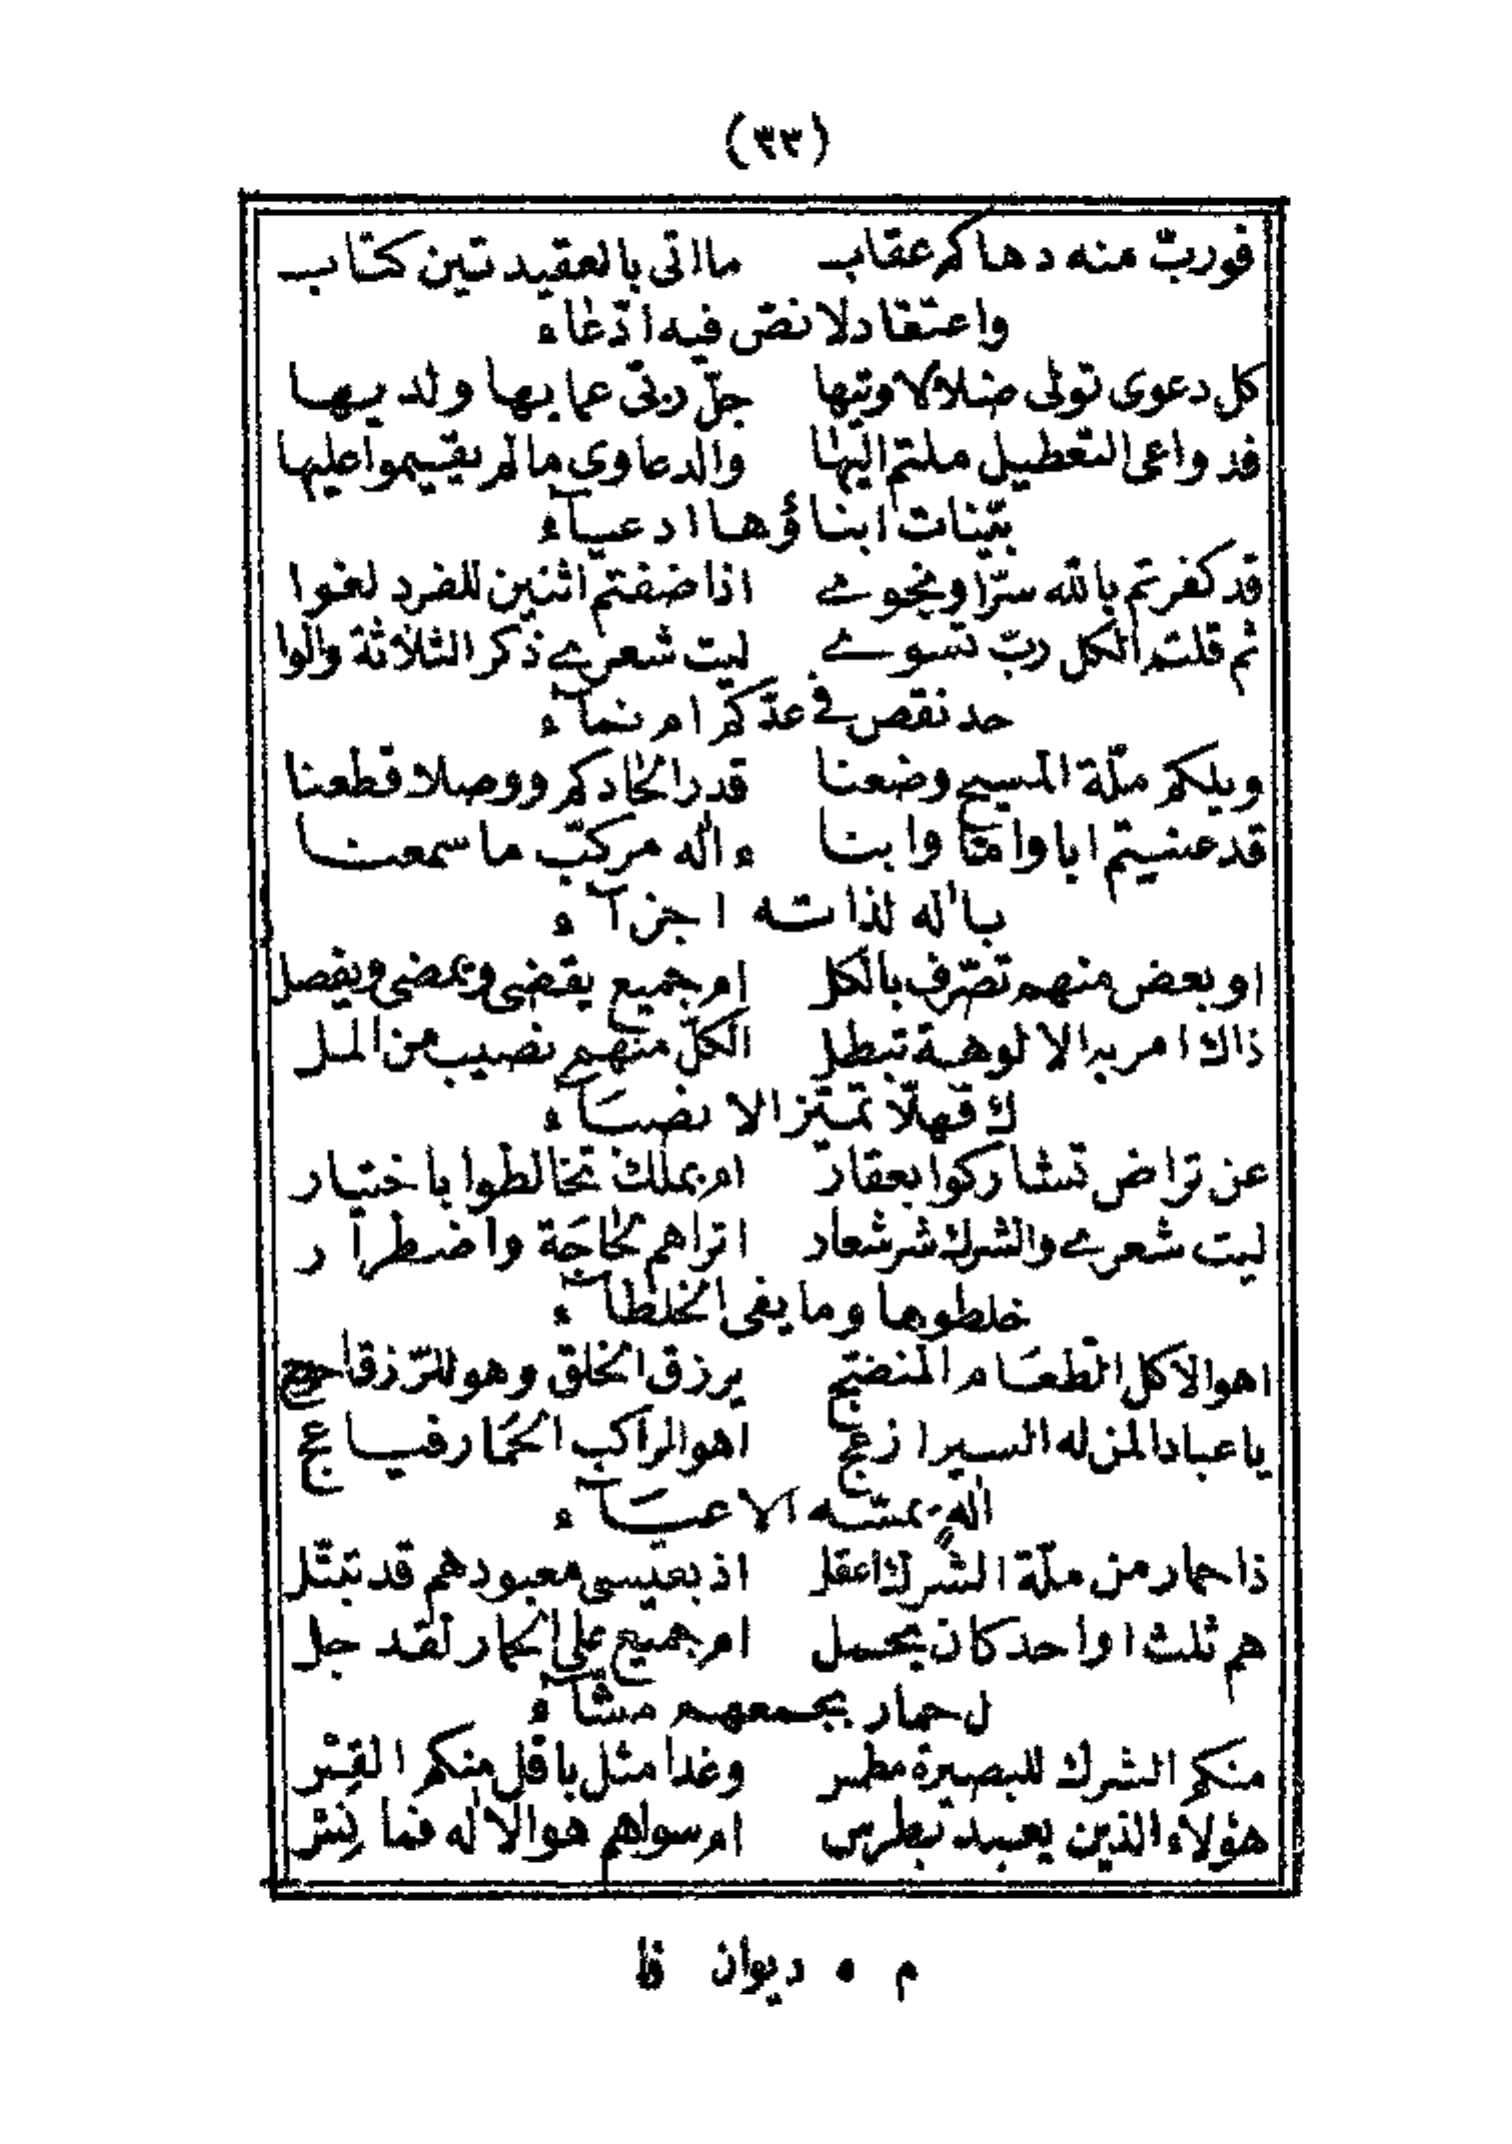 (٣٣)
فوربّ منه دهاكم عقاب ما اتى بالعقيدتين كتاب
واعتقاد لا نصّ فيه ادّعاء
كل دعوى تولى ضلالا وتيها جلّ ربّى عما بها ولديها
فدواعى التعطيل ملتم اليها والدعاوى ما لم يقيموا عليها
بيّنات ابناؤها ادعيآء
قد كفرتم بالله سرّا ونجوے اذا ضفتم اثنين للفرد لغوا
ثم قلتم الكل ربّ تسوے ليت شعرے ذكر الثلاثة والوا
حد نقص فے عدّكم ام نمآء
ويلكم ملّة المسيح وضعنا قدر الحادكم ووصلا قطعنا
قد عنيتم ابا واما وابنا ءاله مركبّ ما سمعنا
باله لذاته اجزآء
او بعض منهم تصّرف بالكل ام جميع يقضى ويمضى ويفصل
ذاك امر به الالوهية تبطل الكلّ منهم نصيب من المل
ك فهلّا تميّز الانصبآء
عن تراض تشاركوا بعقار ام بملك تخالطوا باختيار
ليت شعرے والشرك شر شعار اتراهم لحاجة واضطرار
خلطوها وما بغى الخلطآء
اهو الآكل الطعام المنضّج يرزق الخلق وهو للرّزق احوج
يا عبادا لمن له السير ازعج اهو الراكب الحمار فيا عج
اله يمسّه الاعيآء
ذا حمار من ملّة الشرك اعقل اذ بعيسى معبودهم قد تبتّل
هم ثلث او احد كان يحمل ام جميع على الحمار لقد جل
ل حمار بجمعهم مشّآء
منكم الشرك للبصيرة مطمس وغدا مثل باقل منكم القس
هؤلاء الذين يعبد بطرس ام سواهم هو الاله فما نس
م ٥ ديوان فا